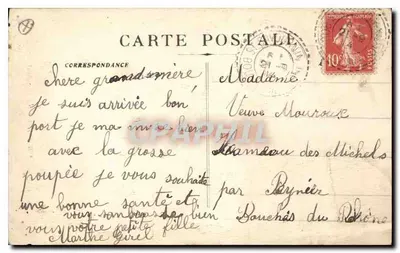 CARTE POSTALE
CORRESPONDANCE
chere grandmère
je suis arrivée bon
port je ma
avec la grosse
poupée je vous souhaite
une bonne santé et
vous bien
vous votre petite fille
Marthe
Madame
Veuve Mouroux
Hameau des Michels
par Peynier
Bouches du Rhône
10